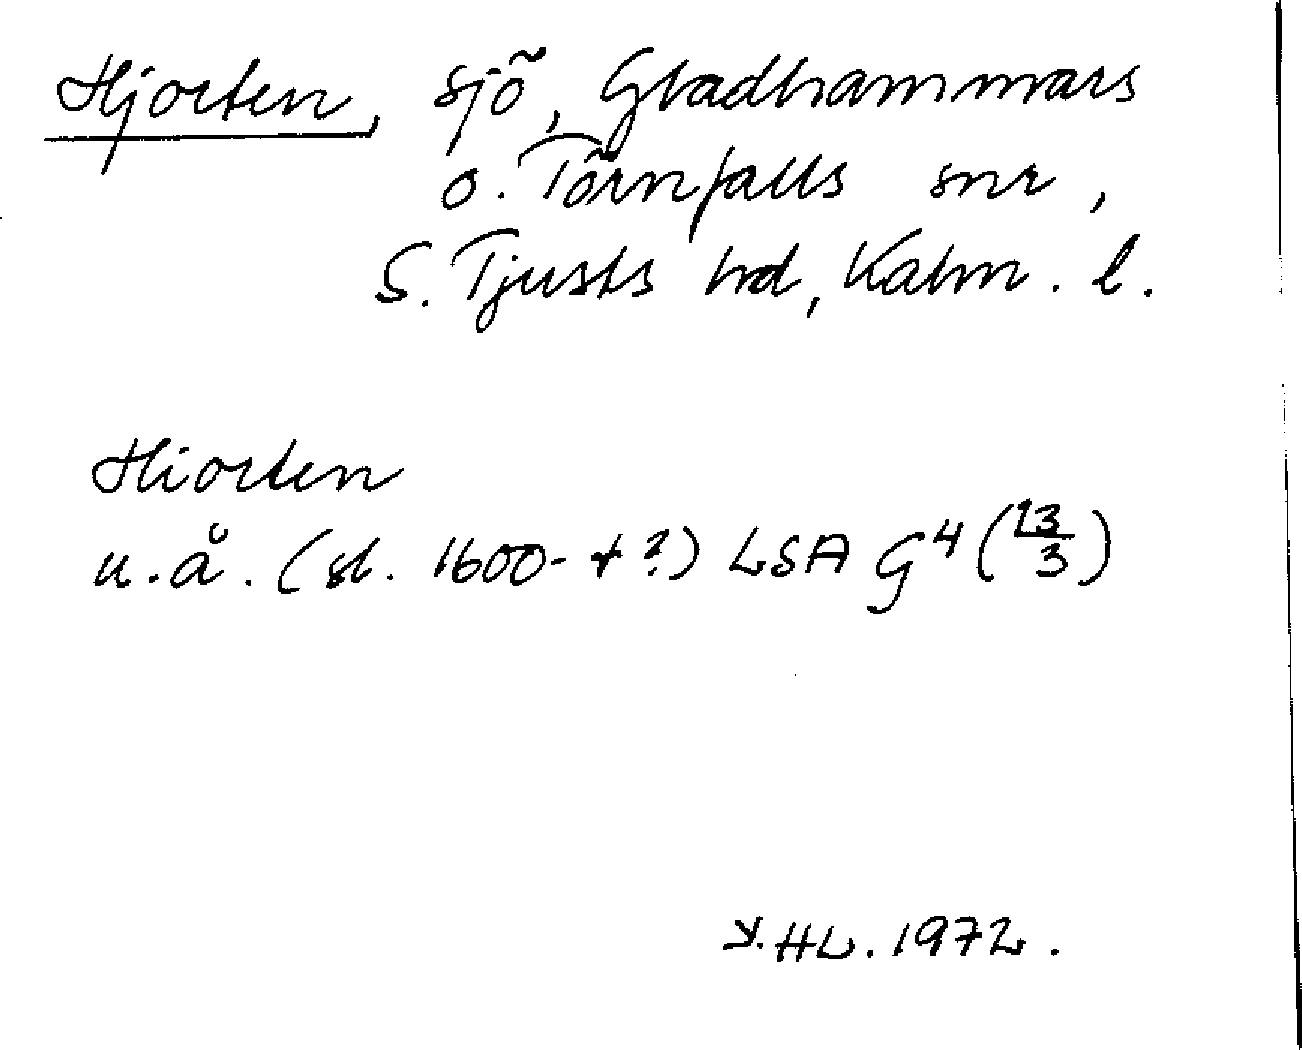 Hjorten, sjö, Gladhammars
o. Törnfalls snr,
S. Tjusts hd, Kalm. l.
Hiorten
u.å. (sl. 1600-t?) LSA G4 (13/3)
HL. 1972.